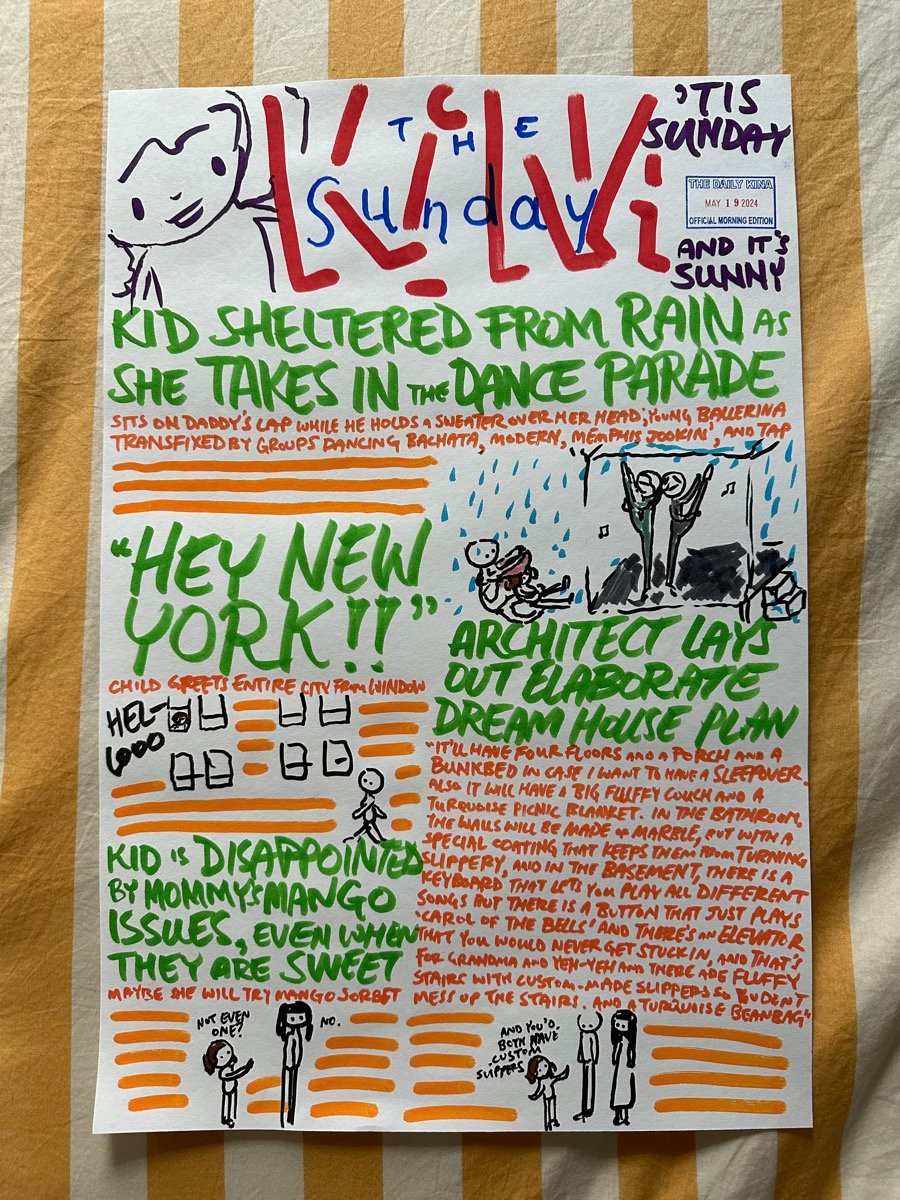 THE
Sunday
KiWi
'TIS
SUNDAY
THE DAILY KINA
MAY 19 2024
OFFICIAL MORNING EDITION
AND IT'S
SUNNY
KID SHELTERED FROM RAIN AS
SHE TAKES IN THE DANCE PARADE
SITS ON DADDY'S LAP WHILE HE HOLDS A SWEATER OVER HER HEAD; YOUNG BALLERINA
TRANSFIXED BY GROUPS DANCING BACHATA, MODERN, MEMPHIS JOOKIN', AND TAP
"HEY NEW
YORK!!"
CHILD GREETS ENTIRE CITY FROM WINDOW
HEL-
LOOO
KID IS DISAPPOINTED
BY MOMMY'S MANGO
ISSUES, EVEN WHEN
THEY ARE SWEET
MAYBE SHE WILL TRY MANGO SORBET
NOT EVEN
ONE?
NO.
ARCHITECT LAYS
OUT ELABORATE
DREAM HOUSE PLAN
"IT'LL HAVE FOUR FLOORS AND A PORCH AND A
BUNKBED IN CASE I WANT TO HAVE A SLEEPOVER.
ALSO IT WILL HAVE A BIG FLUFFY COUCH AND A
TURQUOISE PICNIC BLANKET. IN THE BATHROOM,
THE WALLS WILL BE MADE OF MARBLE, BUT WITH A
SPECIAL COATING THAT KEEPS THEM FROM TURNING
SLIPPERY, AND IN THE BASEMENT, THERE IS A
KEYBOARD THAT LETS YOU PLAY ALL DIFFERENT
SONGS BUT THERE IS A BUTTON THAT JUST PLAYS
'CAROL OF THE BELLS' AND THERE'S AN ELEVATOR
THAT YOU WOULD NEVER GET STUCK IN, AND THAT'S
FOR GRANDMA AND YEH-YEH AND THERE ARE FLUFFY
STAIRS WITH CUSTOM-MADE SLIPPERS SO YOU DON'T
MESS UP THE STAIRS. AND A TURQUOISE BEANBAG"
AND YOU'D
BOTH HAVE
CUSTOM
SLIPPERS